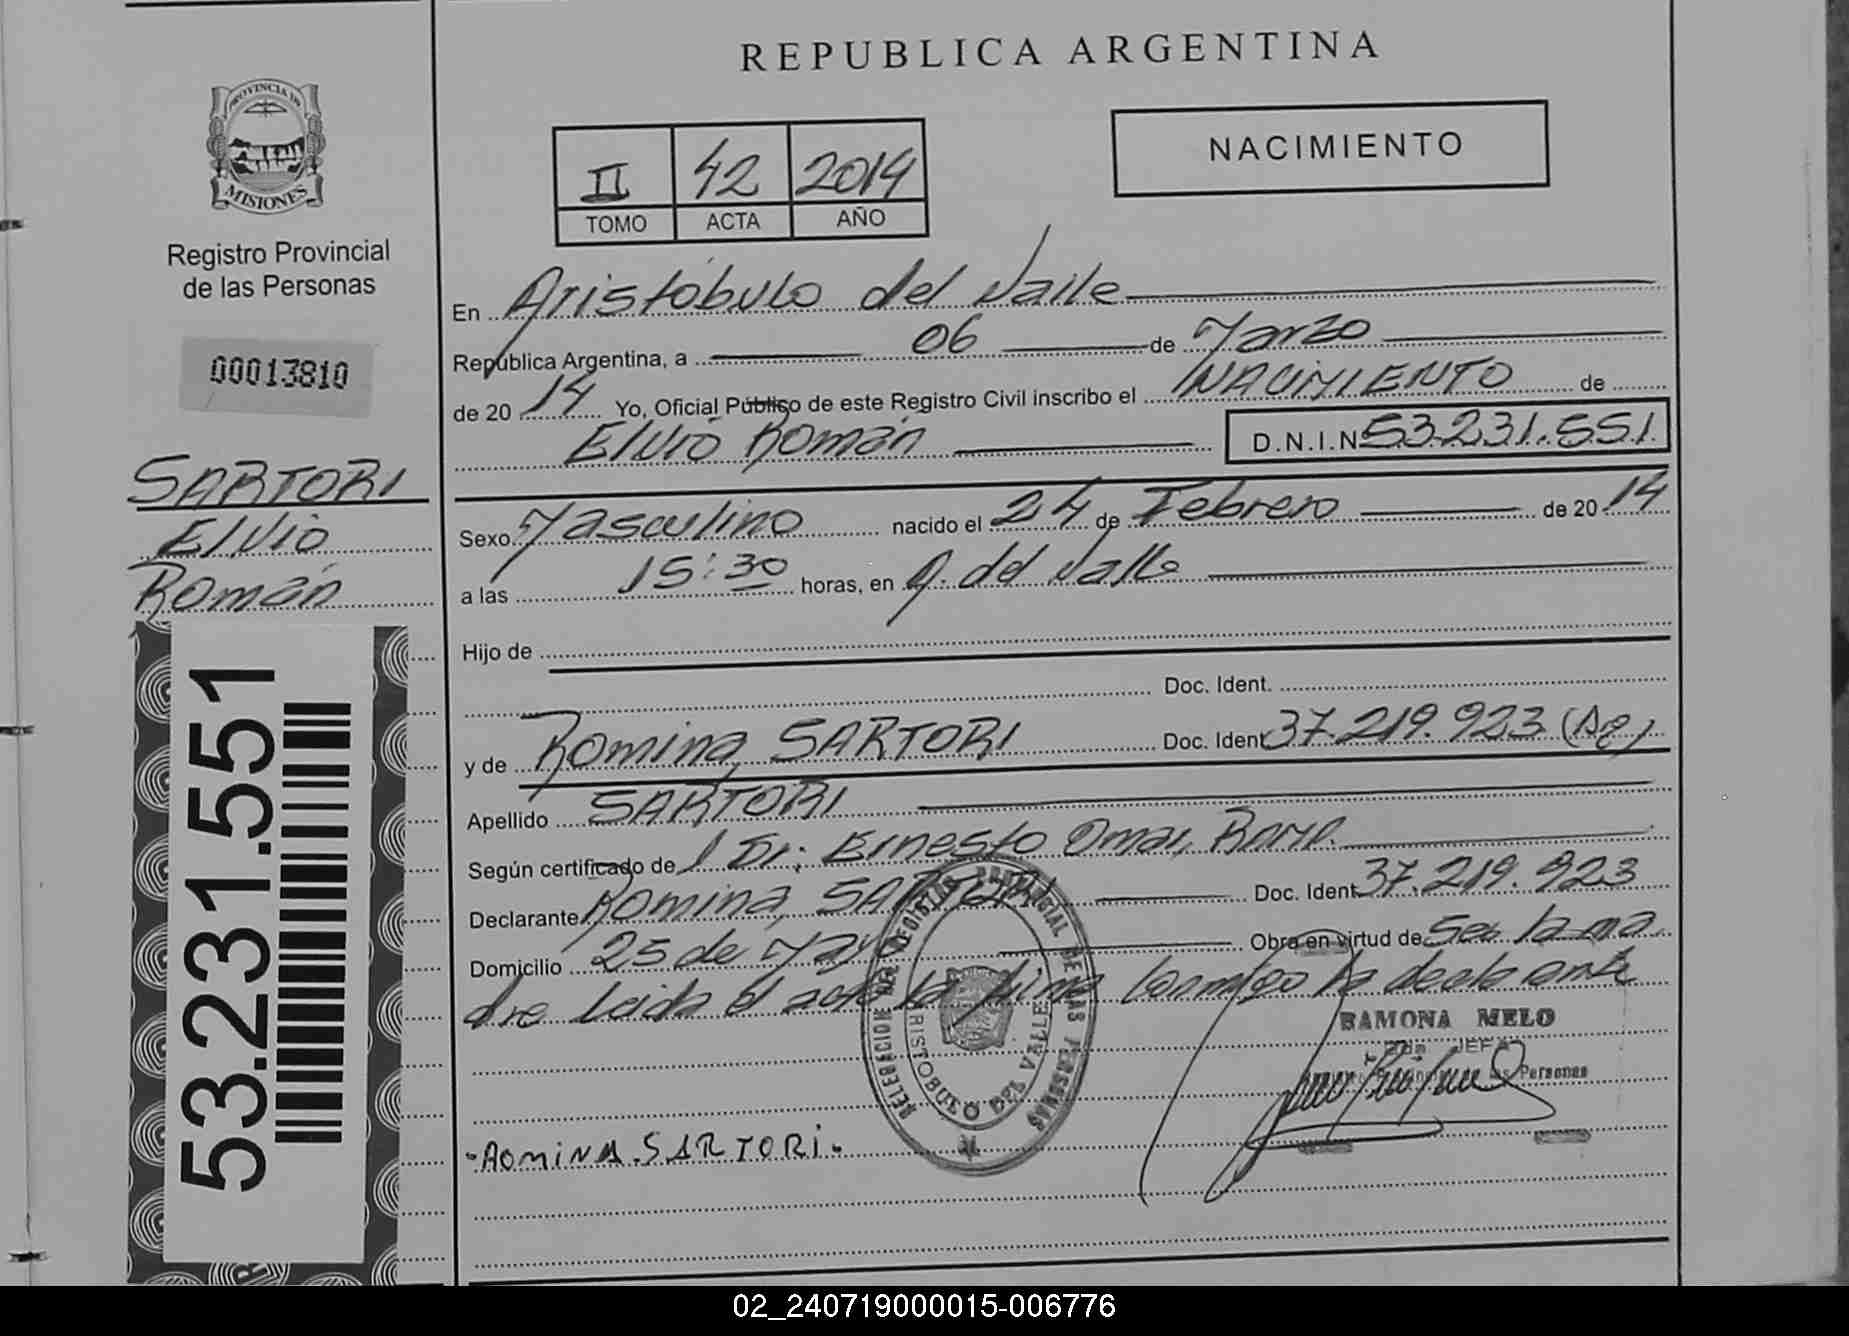 REPUBLICA ARGENTINA
PROVINCIA DE
MISIONES
Registro Provincial
de las Personas
00013810
SARTORI
Elvio
Román
53.231.551
II 42 2014
TOMO ACTA AÑO
NACIMIENTO
En Aristóbulo del Valle
República Argentina, a 06 de Marzo
de 2014 Yo, Oficial Público de este Registro Civil inscribo el NACIMIENTO de
Elvio Román D.N.I.N 53.231.551.
Sexo Masculino nacido el 24 de Febrero de 2014
a las 15:30 horas, en A. del Valle
Hijo de
Doc. Ident.
y de Romina, SARTORI Doc. Ident 37.219.923 (Ag)
Apellido SARTORI
Según certificado de Dr: Ernesto Omar,
Declarante Romina, SARTORI Doc. Ident 37.219.923
Domicilio 25 de Mayo Obra en virtud de Ser la ma
dre Leida el acta la firma conmigo la declarante
DELEGACION DEL REGISTRO PROVINCIAL DE LAS PERSONAS
ARISTOBULO DEL VALLE
RAMONA MELO
JEFA
Personas
-ROMINA.SARTORI.
02_240719000015-006776